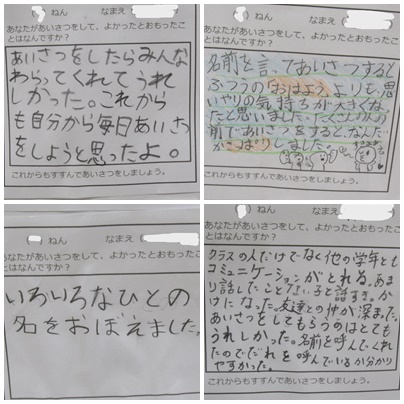 ねん なまえ
あなたがあいさつをして、よかったとおもったこ
とはなんですか？
あいさつをしたらみんな
わらってくれてうれ
しかった。これから
も自分から毎日あいさつ
をしようと思ったよ。
これからもすすんであいさつをしましょう。
ねん なまえ
あなたがあいさつをして、よかったとおもったこ
とはなんですか？
名前を言ってあいさつすると
ふつうの「おはよう」よりも、思
いやりの気持ちが大きくなっ
たと思いました。たくさんの人の
前であいさつをすると、なんだ
かさっぱりしました。
これからもすすんであいさつをしましょう。
ねん なまえ
あなたがあいさつをして、よかったとおもったこ
とはなんですか？
いろいろなひとの
名をおぼえました。
ねん なまえ
あなたがあいさつをして、よかったとおもったこ
とはなんですか？
クラスの人だけでなく他の学年とも
コミュニケーションがとれる。あま
り話したことない子と話すきっか
けになった。友達との仲が深まった。
あいさつをしてもらうのはとても
うれしかった。名前を呼んでくれ
たのでだれを呼んでいるか分かり
やすかった。
これからもすすんであいさつをしましょう。